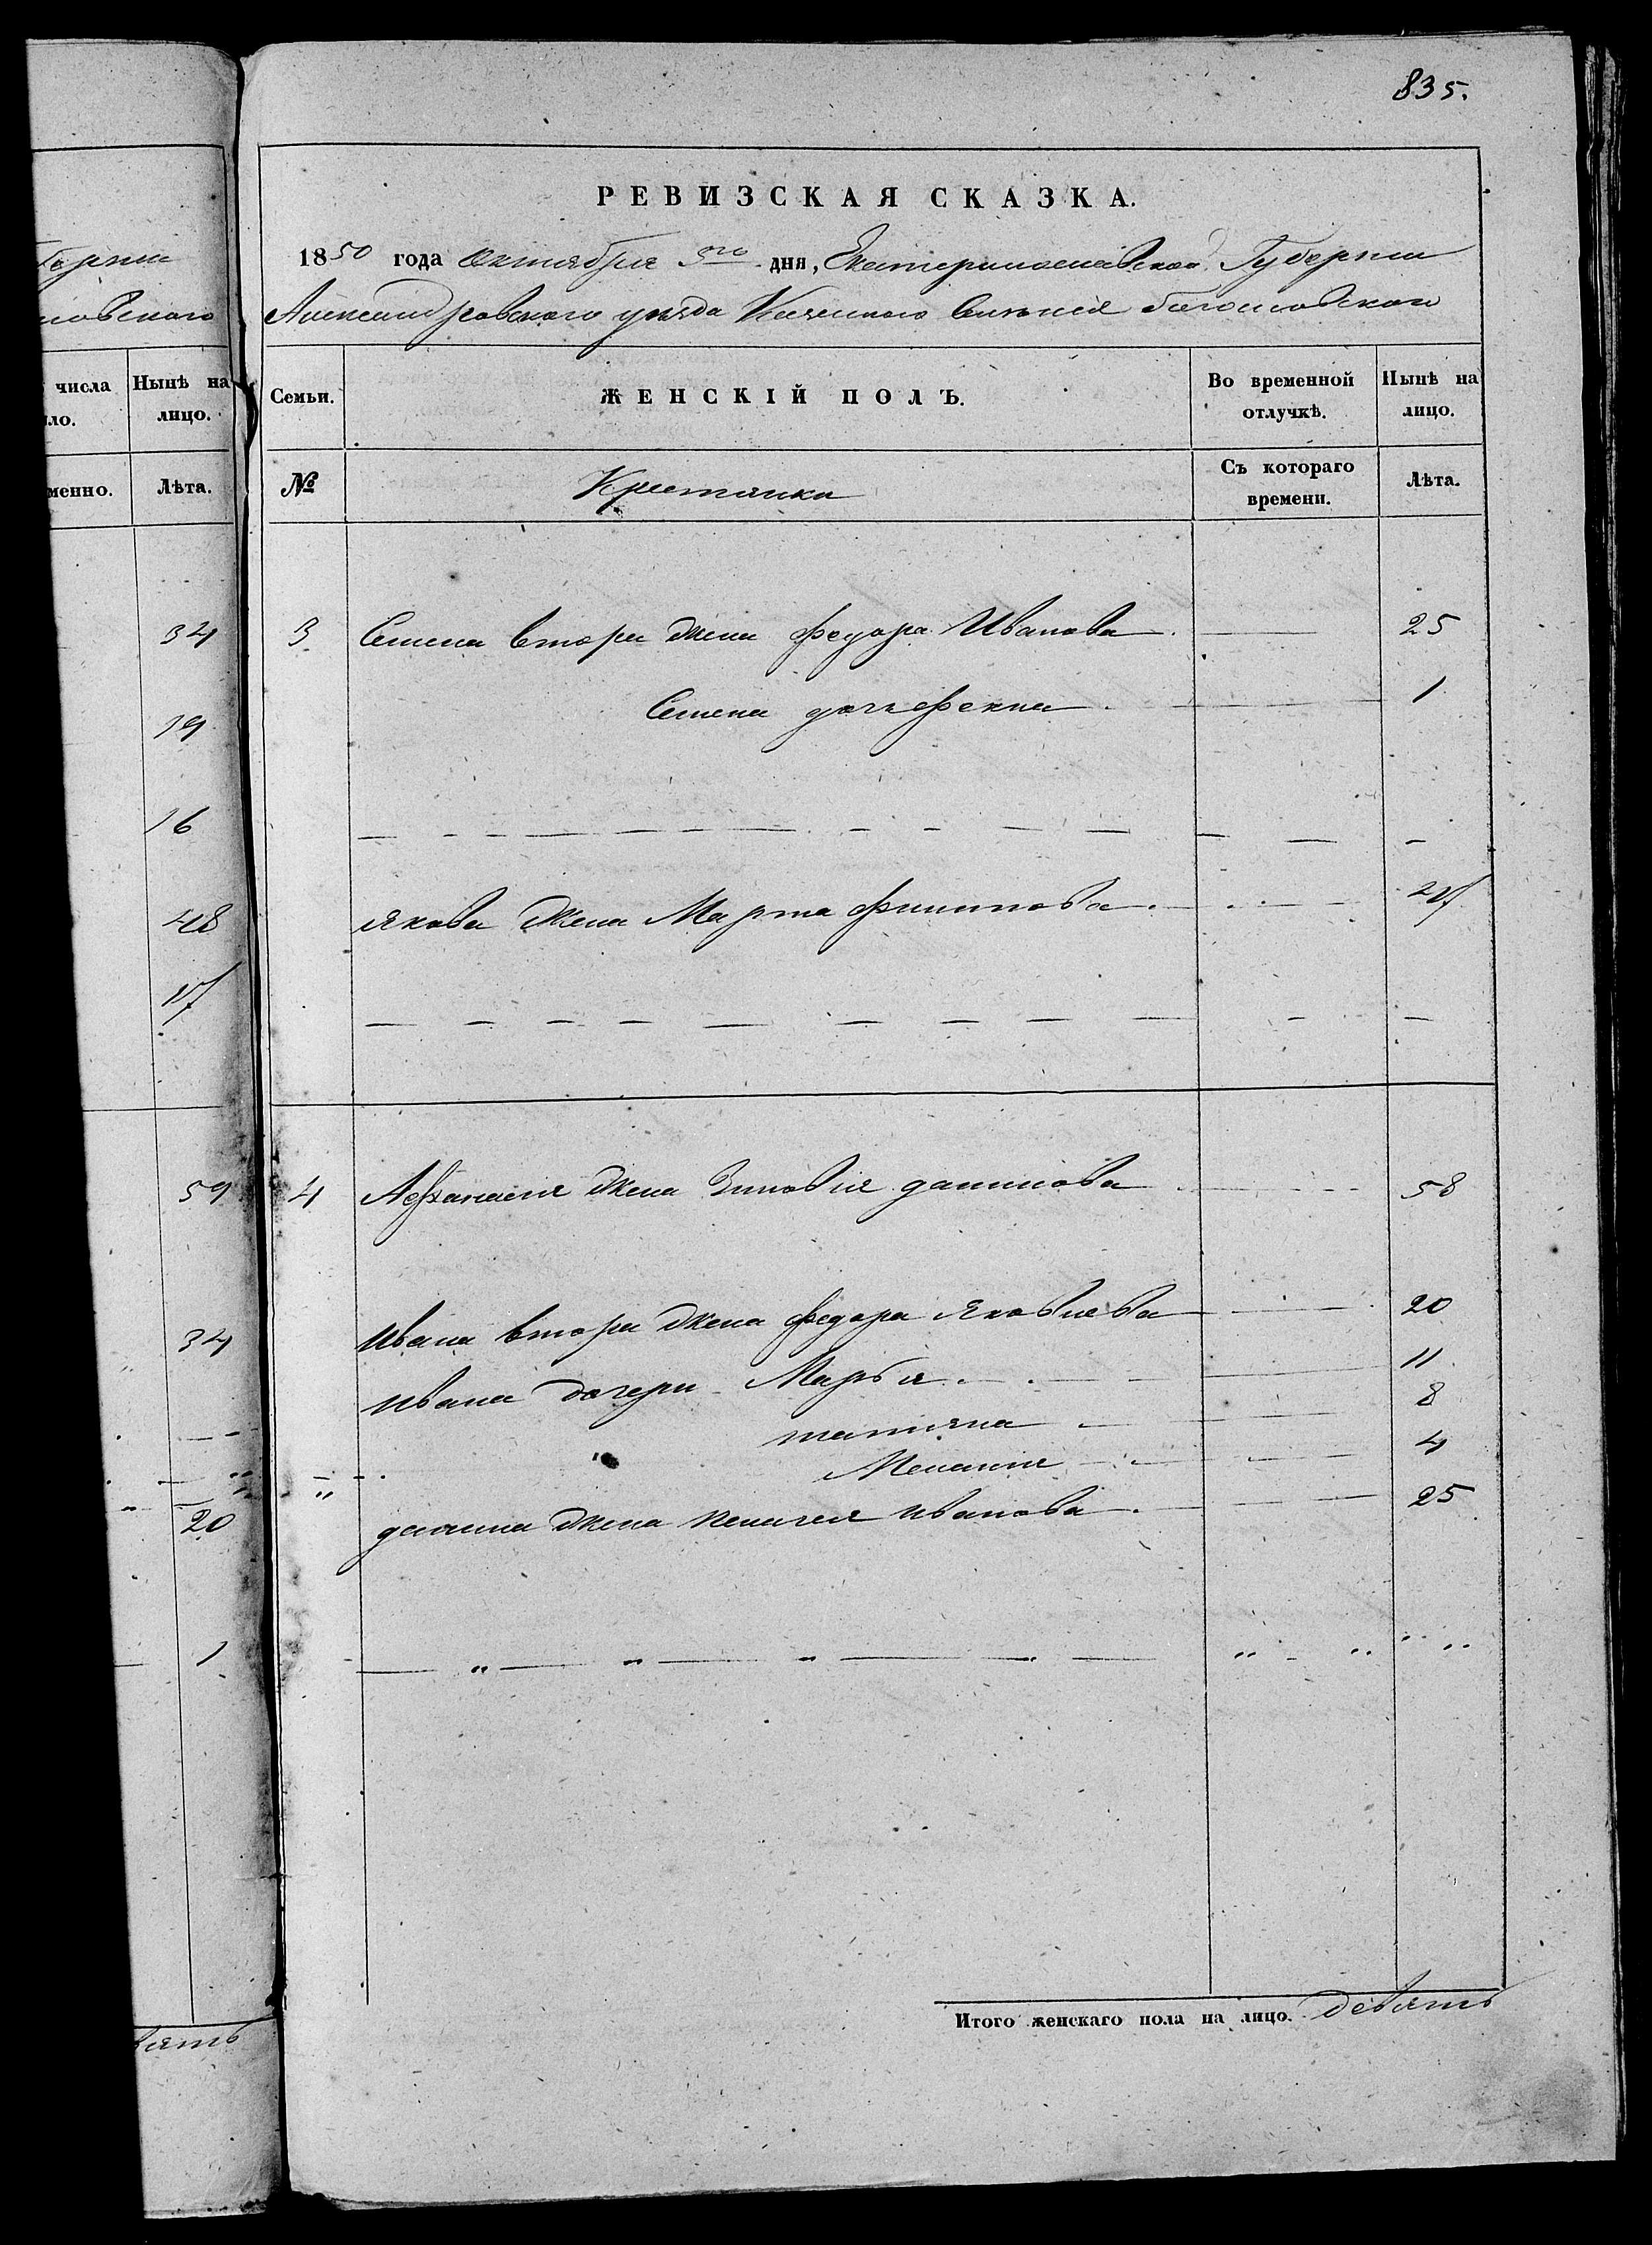 835.
РЕВИЗСКАЯ СКАЗКА.
1850 года Октября 5го дня, Екатеринославской Губернии
Александровского уезда Казенного Селения
числа
Нынѣ на лицо.
Семьи.
ЖЕНСКІЙ ПОЛЪ.
Во временной отлучкѣ.
Нынѣ на лицо.
Лѣта.
№
Крестянки
Съ котораго времени.
Лѣта.
34
3 Семена втора жена Федора Иванова 25
Семена дочь Фекла 1
19
16
Якова жена Марта Филипова 27
48
17
59
4 Афанасия жена Зиновия данилова 58
34
Ивана втора жена Федора Яковлева 20
Ивана дочери Марья 11
татияна 8
Мелания 4
20
данила жена пелагея иванова 25
1
Итого женскаго пола на лицо. девять